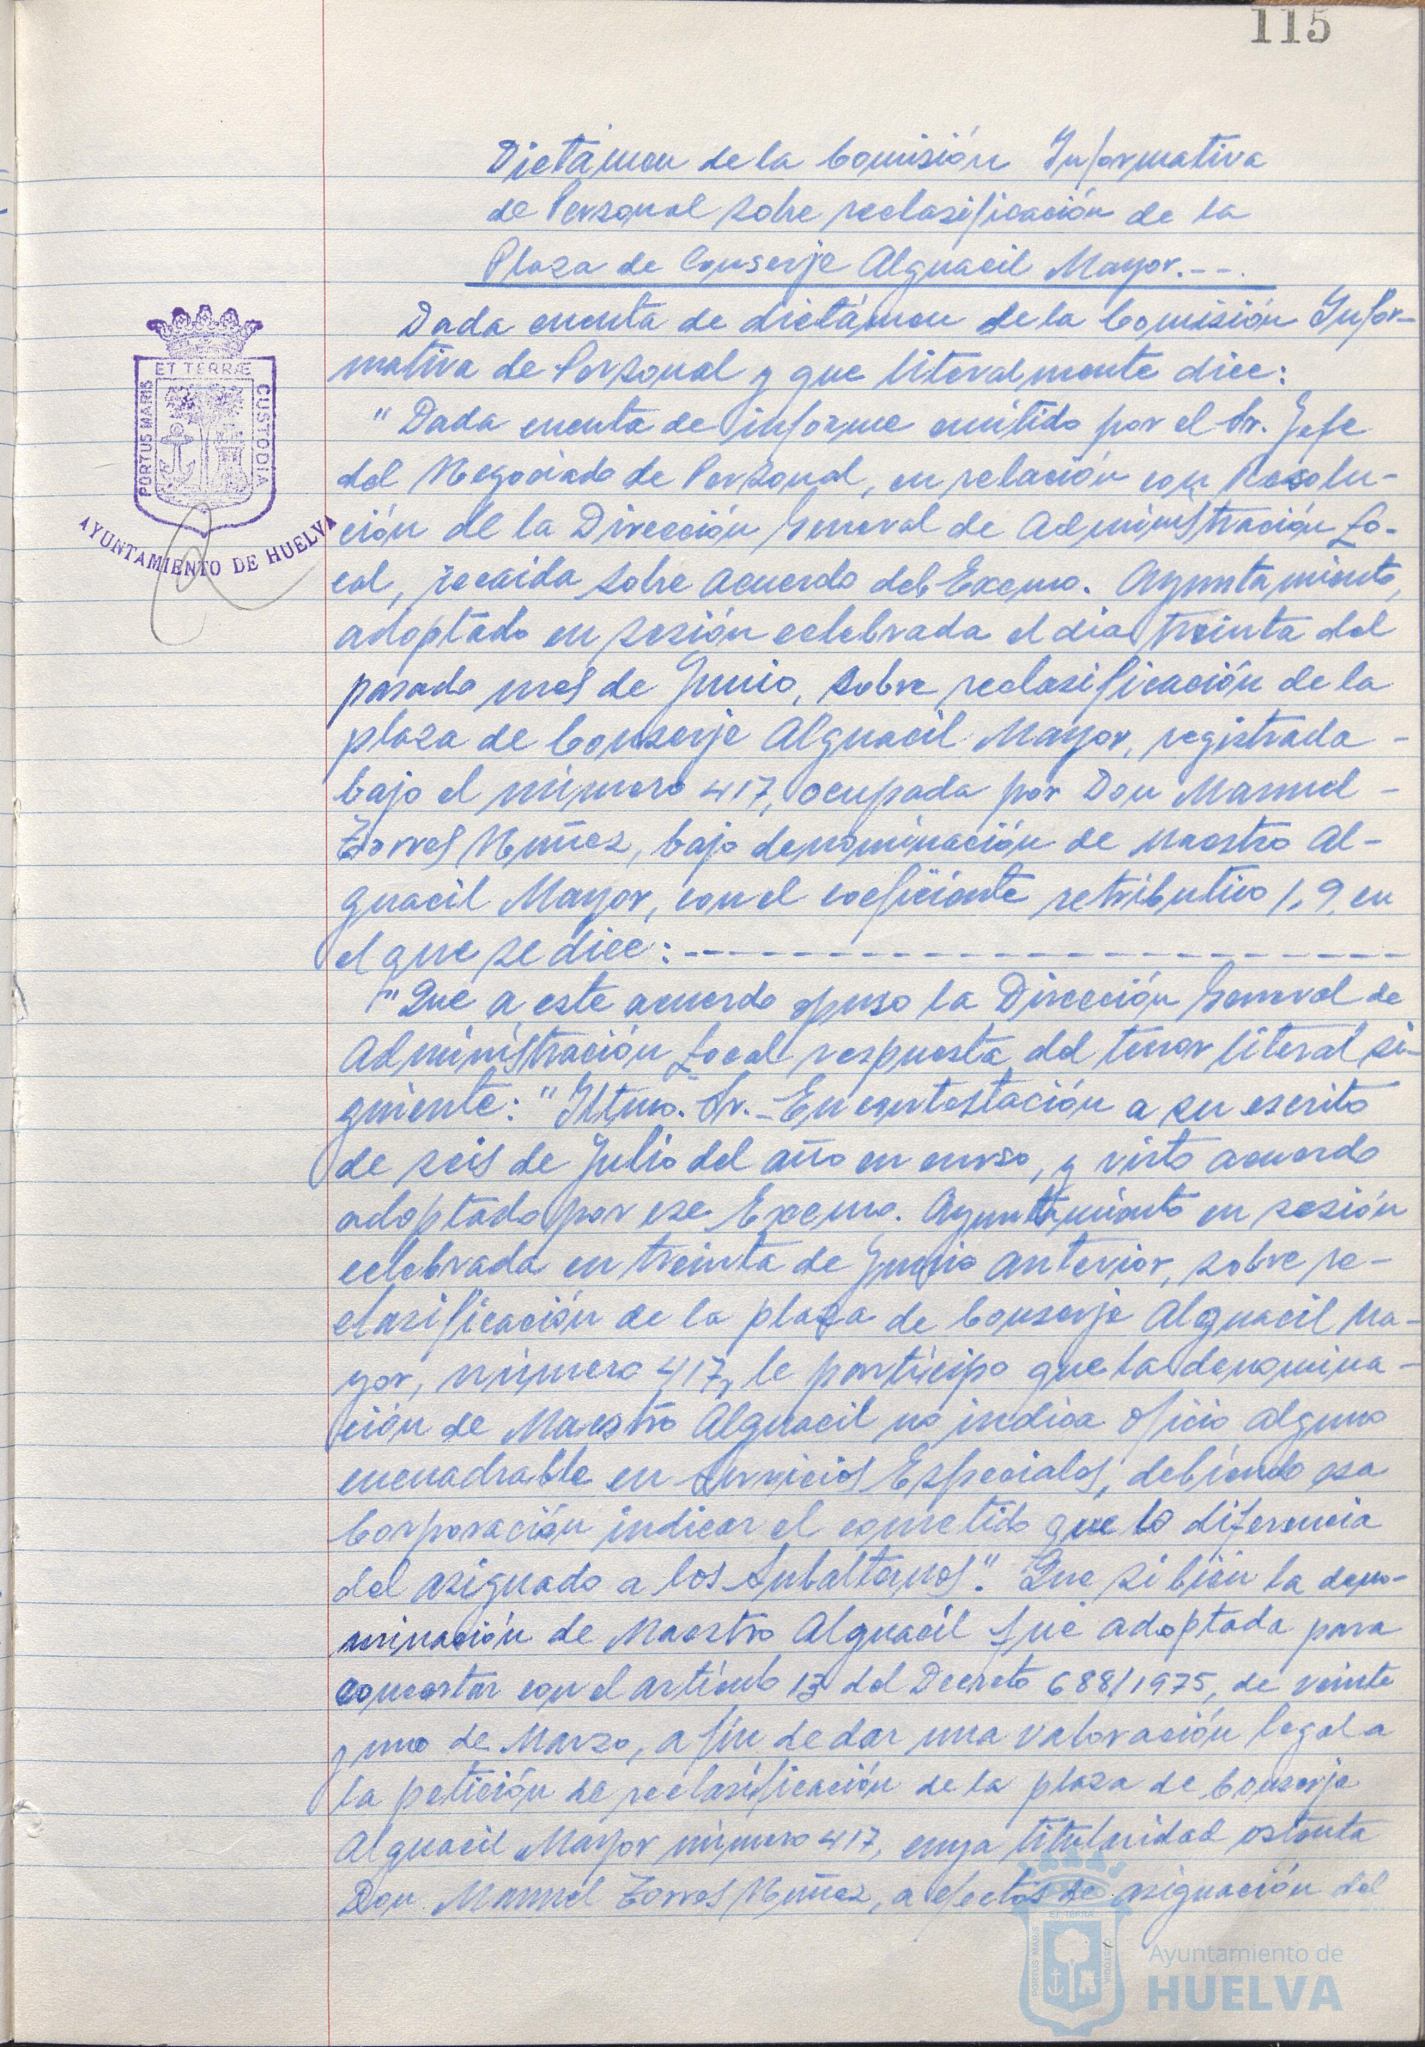 115
Dictámen de la Comisión Informativa
de Personal sobre reclasificación de la
Plaza de Conserje Alguacil Mayor.---.
Dada cuenta de dictámen de la Comisión Infor-
mativa de Personal y que literalmente dice:
"Dada cuenta de informe emitido por el Sr. Jefe
del Negociado de Personal, en relación con Resolu-
ción de la Dirección General de Administración Lo-
cal, recaida sobre acuerdo del Excmo. Ayuntamiento,
adoptado en sesión celebrada el dia treinta del
pasado mes de Junio, sobre reclasificación de la
plaza de Conserje Alguacil Mayor, registrada -
bajo el número 417, ocupada por Don Manuel -
Torres Nuñez, bajo denominación de Maestro Al-
guacil Mayor, con el coeficiente retributivo 1,9, en
el que se dice: - - - - - - - - - - - - - - - - - - - - - -
"Que a este acuerdo opuso la Dirección General de
Administración Local respuesta del tenor literal si-
guiente: "Iltmo. Sr.- En contestación a su escrito
de seis de Julio del año en curso, y visto acuerdo
adoptado por ese Excmo. Ayuntamiento en sesión
celebrada en treinta de Junio anterior, sobre re-
clasificación de la plaza de Conserje Alguacil Ma-
yor, número 417, le participo que la denomina-
ción de Maestro Alguacil no indica oficio alguno
encuadrable en Servicios Especiales, debiendo esa
Corporación indicar el cometido que lo diferencia
del asignado a los Subalternos". Que si bien la deno-
minación de Maestro Alguacil fué adoptada para
concertar con el artículo 13 del Decreto 688/1975, de veinte
y uno de Marzo, a fin de dar una valoración legal a
la petición de reclasificación de la plaza de Conserje
Alguacil Mayor número 417, cuya titularidad ostenta
Don Manuel Torres Nuñez, a efectos de asignación del
PORTUS MARIS ET TERRÆ CUSTODIA
AYUNTAMIENTO DE HUELVA
Ayuntamiento de
HUELVA